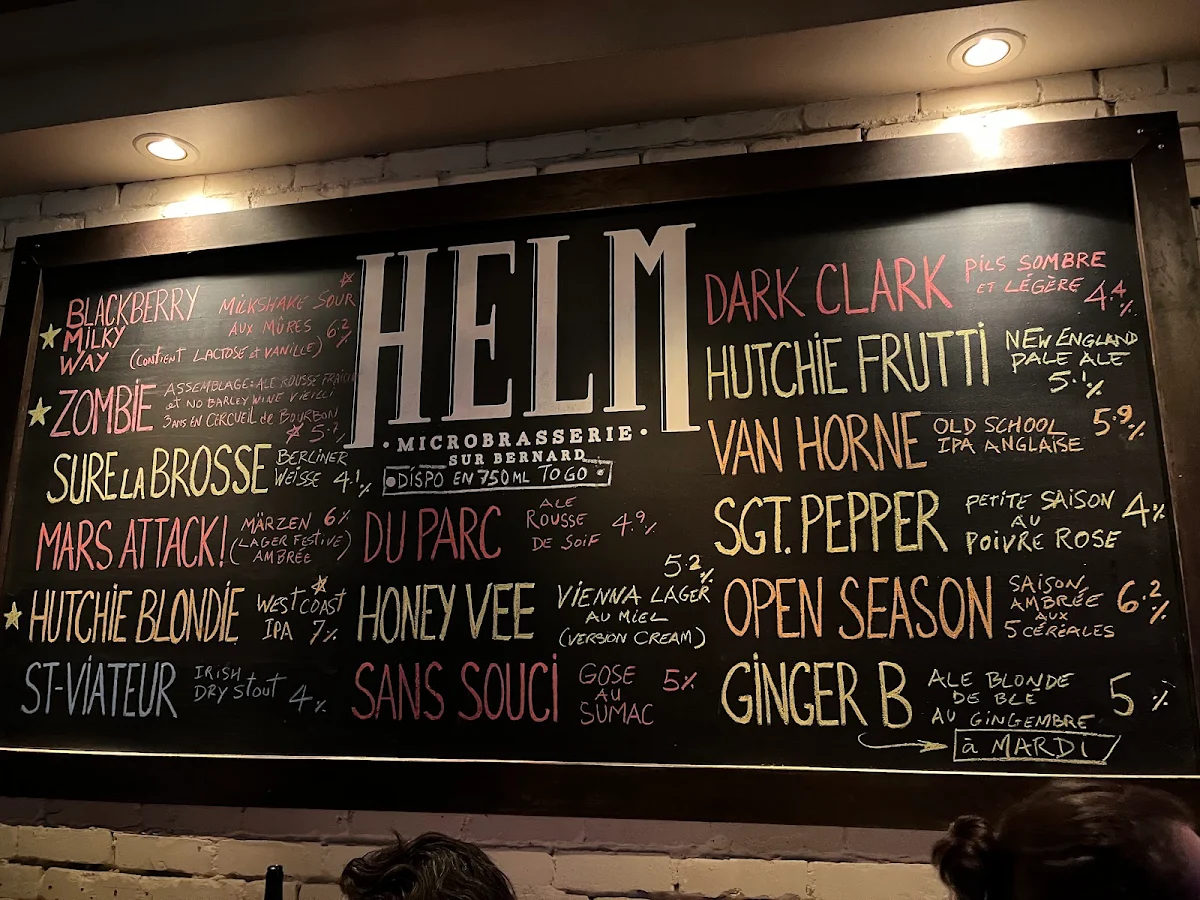 HELM
• MICROBRASSERIE •
SUR BERNARD
• DISPO EN 750ML TO GO •
BLACKBERRY
MILKY
WAY
MILKSHAKE SOUR
AUX MÛRES 6.2%
(CONTIENT LACTOSE & VANILLE)
ZOMBIE
ASSEMBLAGE: ALE ROUSSE FRAICHE
et NO BARLEY WINE VIEILLI
3 ANS EN CERCUEIL de BOURBON
5.7%
SURE LA BROSSE
BERLINER
WEISSE 4.1%
MARS ATTACK!
MÄRZEN 6%
(LAGER FESTIVE)
AMBRÉE
HUTCHIE BLONDIE
WEST COAST
IPA 7%
ST-VIATEUR
IRISH
DRY STOUT 4%
DU PARC
ALE
ROUSSE
DE SOIF
4.9%
HONEY VEE
5.2%
VIENNA LAGER
AU MIEL
(VERSION CREAM)
SANS SOUCI
GOSE
AU
SUMAC
5%
DARK CLARK
PILS SOMBRE
ET LÉGÈRE
4.4%
HUTCHIE FRUTTI
NEW ENGLAND
PALE ALE
5.1%
VAN HORNE
OLD SCHOOL
IPA ANGLAISE
5.9%
SGT. PEPPER
PETITE SAISON
AU
POIVRE ROSE
4%
OPEN SEASON
SAISON
AMBRÉE
AUX
5 CÉRÉALES
6.2%
GINGER B
ALE BLONDE
DE BLÉ
AU GINGEMBRE
5%
à MARDI